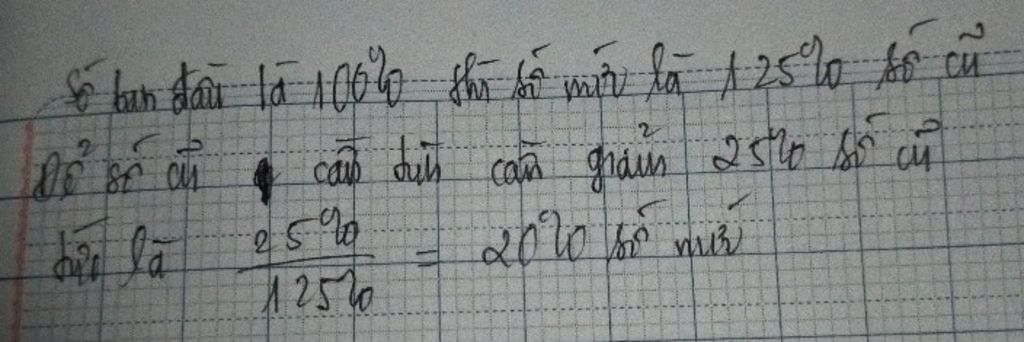 Số ban đầu là 100% thì số mới là 125% số cũ
Để số cũ cần giảm 25% số cũ
tức là 25% / 125% = 20% số mới